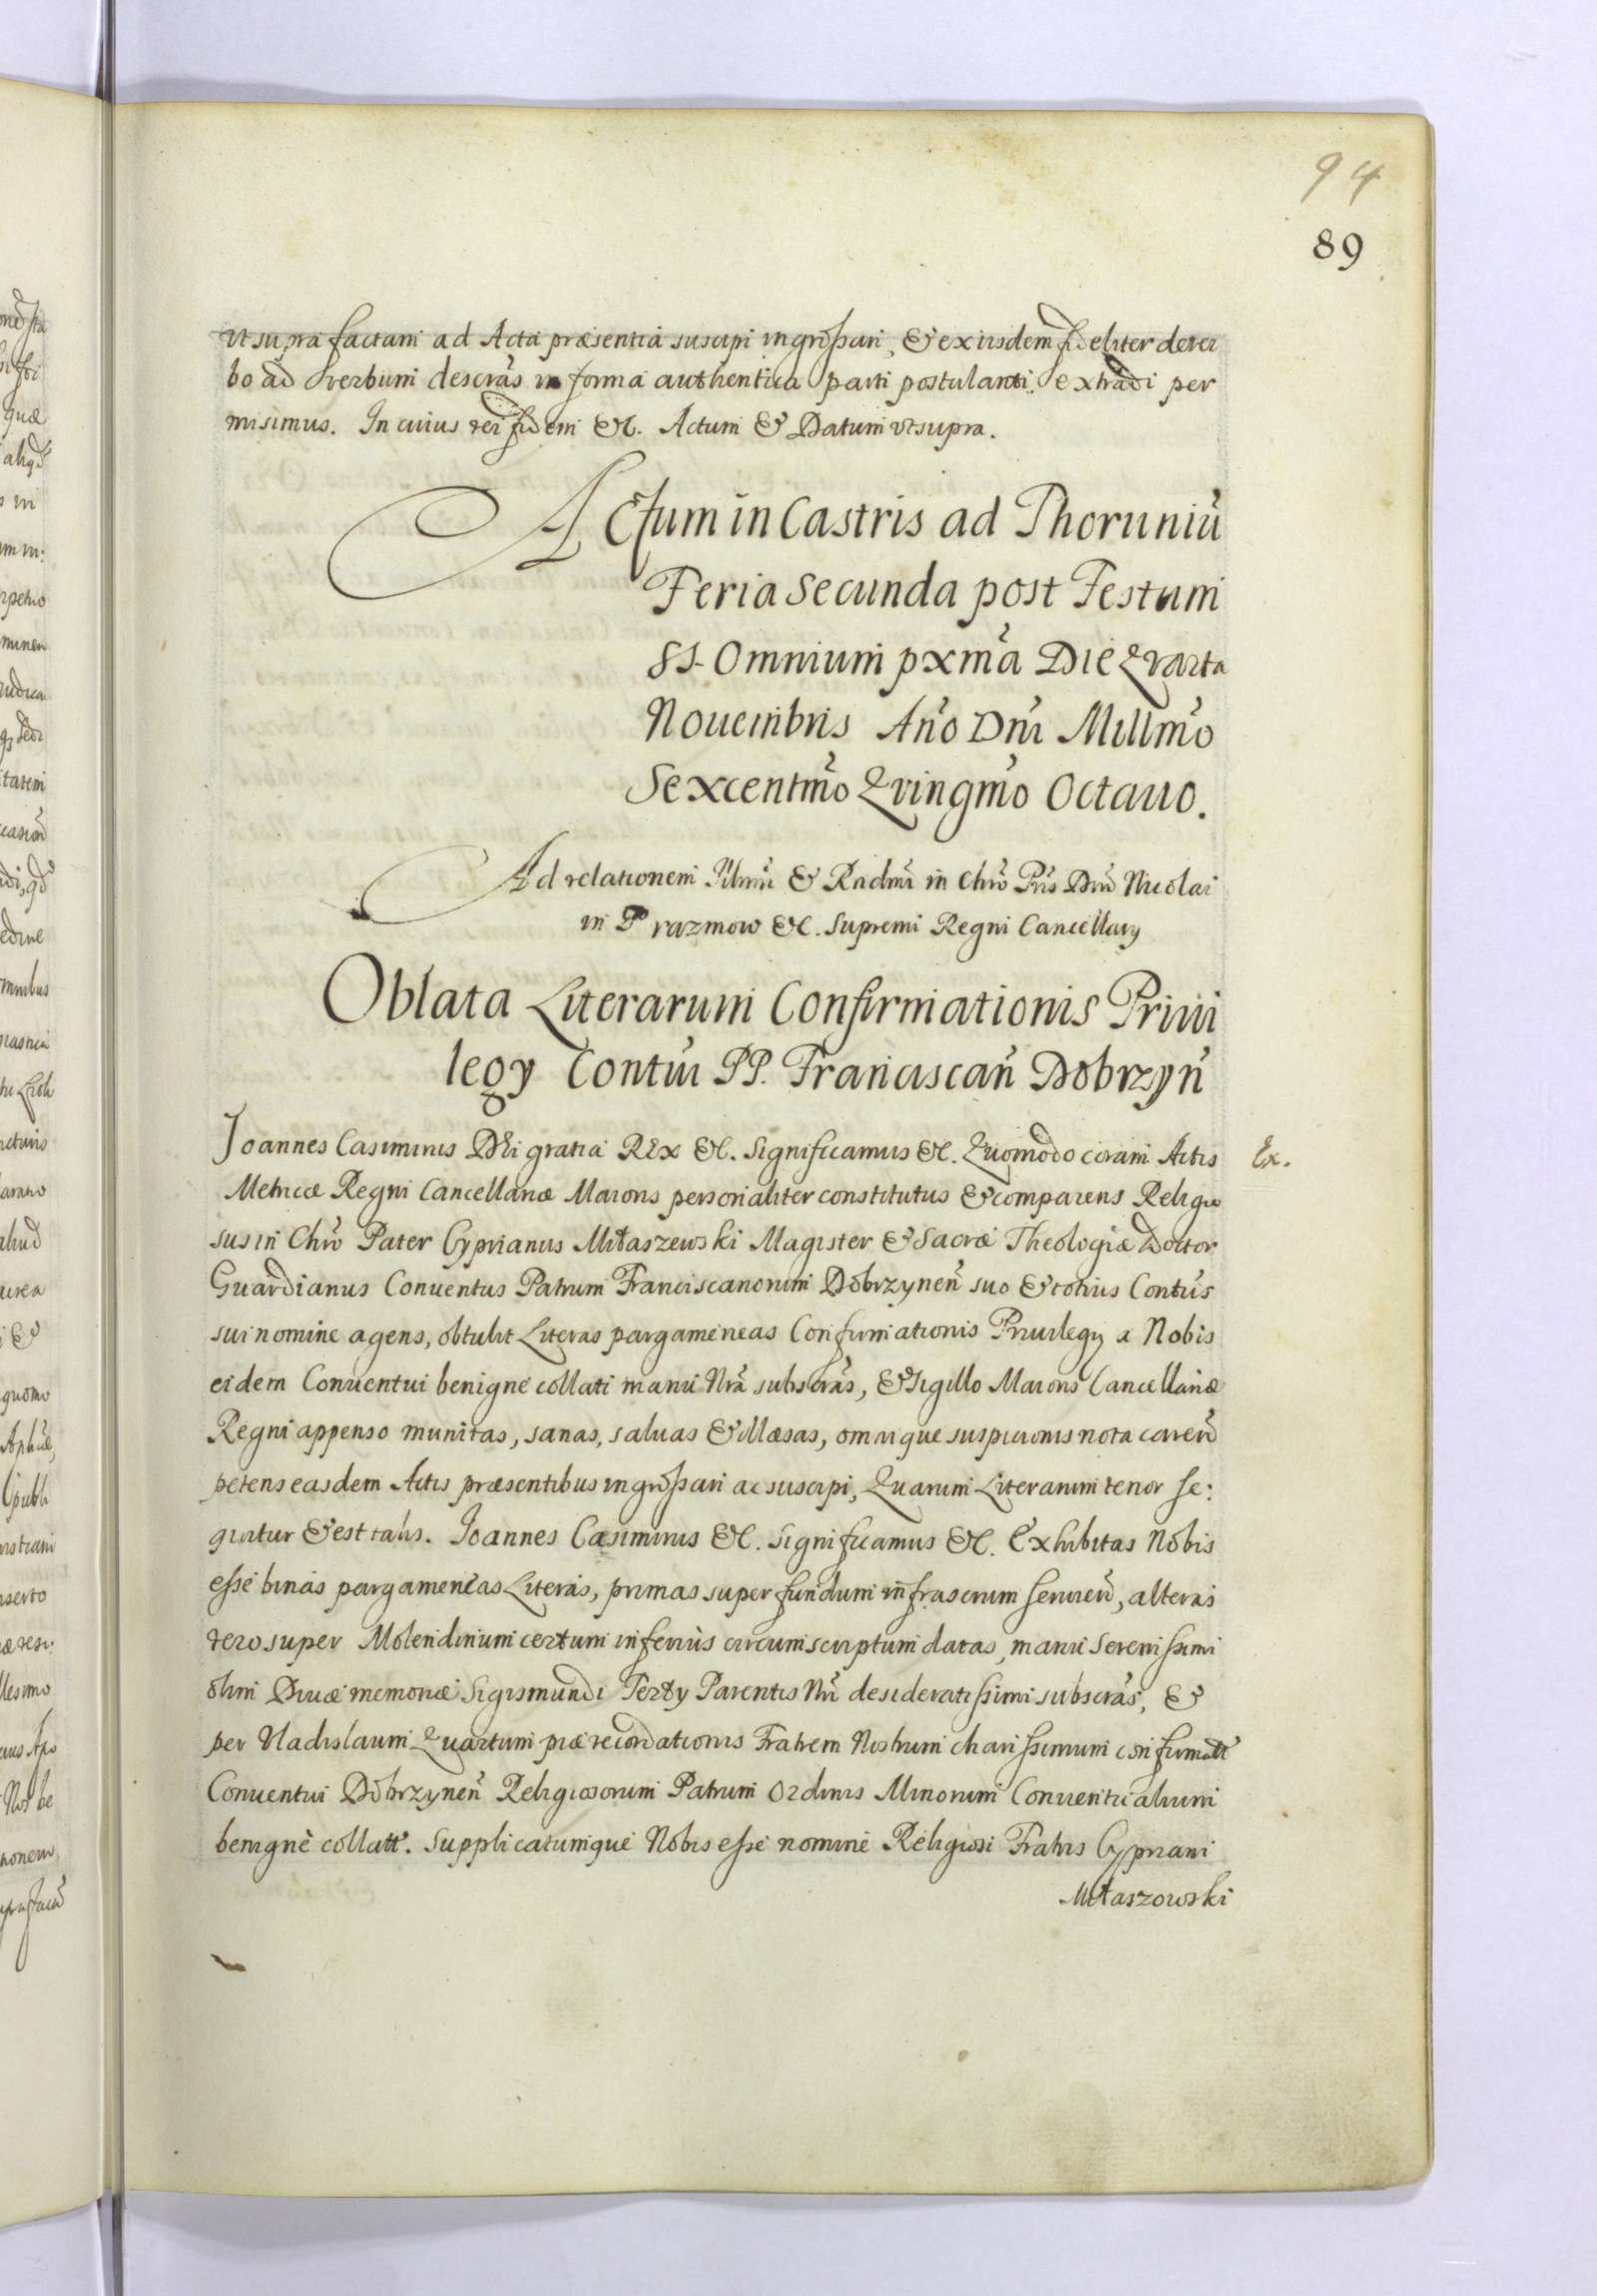 94
89
vt supra factam ad Acta præsentia suscipi ingroſsari, & ex iisdem fideliter de ver
bo ad verbum descrās in forma authentica parti postulanti extradi per
misimus. In cuius rei fidem &c. Actum & Datum vt supra.
Actum in Castris ad Thoruniū
Feria Secunda post Festum
SS. Omnium pxm̄a Die Qvarta
Nouembris An̄o Dn̄i Millm̄o
Sexcentm̄o Qvingm̄o Octauo.
Ad relationem Illmi & Rndmi in Chro Pris Dni Nicolai
in Prazmow &c. Supremi Regni Cancellarij
Oblata Literarum Confirmationis Priui
legij Contūi PP. Franciscan̄ Dobrzyn̄
Joannes Casimirus DEi gratia REx &c. Significamus &c. Quomodo coram Actis
Ex.
Metricæ Regni Cancellariæ Maioris personaliter constitutus & comparens Religio
sus in Chr̄o Pater Cyprianus Mitaszewski Magister & Sacræ Theologiæ Doctor
Guardianus Conuentus Patrum Franciscanorum Dobrzynen̄ suo & totius Contūs
sui nomine agens, obtulit Literas pargameneas Confirmationis Priuilegij a Nobis
eidem Conuentui benigne collati manu Nr̄a subscrās, & Sigillo Maioris Cancellariæ
Regni appenso munitas, sanas, saluas & illæsas, omnique suspicionis nota caren̄
petens easdem Actis præsentibus ingroſsari ac suscipi, Quarum Literarum tenor se:
quitur & est talis. Joannes Casimirus &c. Significamus &c. Exhibitas Nobis
eſse binas pargameneas Literas, primas super fundum infrascrum seruien̄, alteras
vero super Molendinum certum inferiùs circumscriptum datas, manu Sereniſsimi
olim Diuæ memoriæ Sigismundi Tertij Parentis Nr̄i desideratiſsimi subscrās, &
per Vladislaum Quartum piæ recordationis Fratrem Nostrum chariſsimum confirmatt
Conuentui Dobrzynen̄ Religiosorum Patrum Ordinis Minorum Conuentualium
benignè collatt. Supplicatumque Nobis eſse nomine Religiosi Fratris Cypriani
Mitaszowski